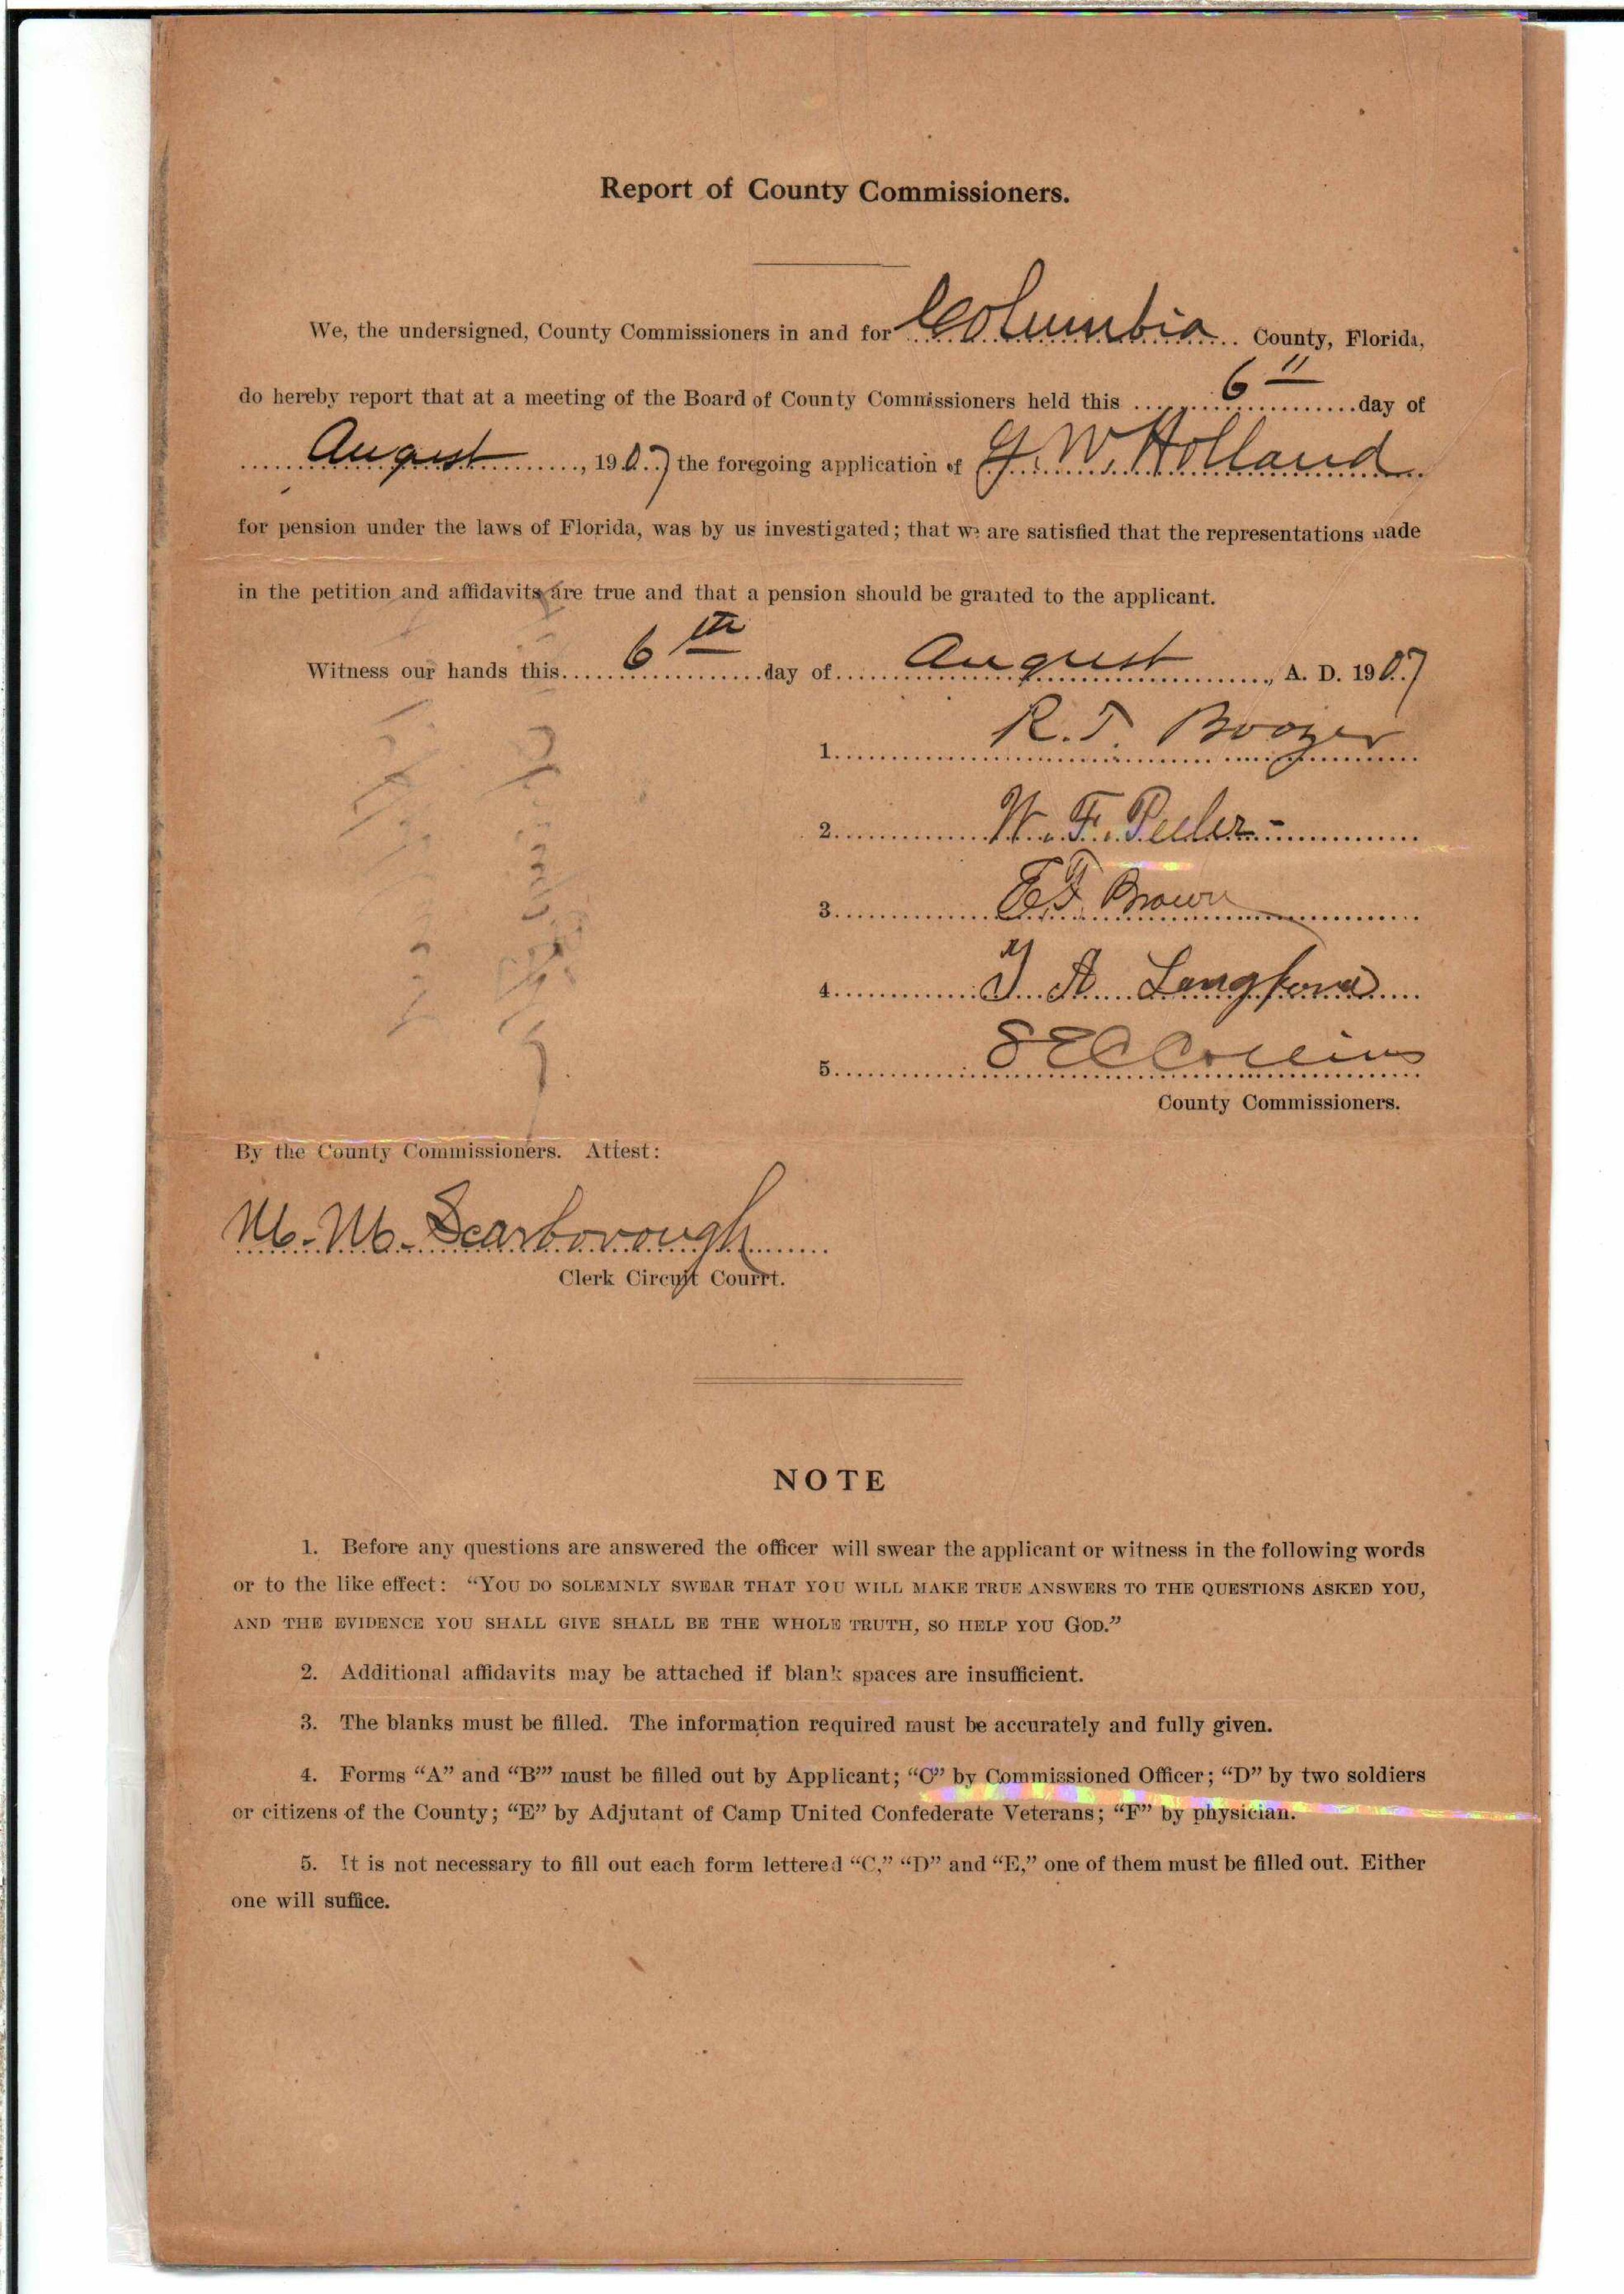 Report of County Commissioners.
We, the undersigned, County Commissioners in and for Columbia County, Florida,
do hereby report that at a meeting of the Board of County Commissioners held this 6" day of
August, 1907 the foregoing application of G. W. Holland
for pension under the laws of Florida, was by us investigated; that we are satisfied that the representations made
in the petition and affidavits are true and that a pension should be granted to the applicant.
Witness our hands this 6th day of August, A. D. 1907
1. R. T. Boozer
2. W. F. Peeler
3. Brown
4. Langford
5. S E C Collins
County Commissioners.
By the County Commissioners. Attest:
M. M. Scarborough
Clerk Circuit Courrt.
NOTE
1. Before any questions are answered the officer will swear the applicant or witness in the following words
or to the like effect: "YOU DO SOLEMNLY SWEAR THAT YOU WILL MAKE TRUE ANSWERS TO THE QUESTIONS ASKED YOU,
AND THE EVIDENCE YOU SHALL GIVE SHALL BE THE WHOLE TRUTH, SO HELP YOU GOD."
2. Additional affidavits may be attached if blank spaces are insufficient.
3. The blanks must be filled. The information required must be accurately and fully given.
4. Forms "A" and "B'" must be filled out by Applicant; "C" by Commissioned Officer; "D" by two soldiers
or citizens of the County; "E" by Adjutant of Camp United Confederate Veterans; "F" by physician.
5. It is not necessary to fill out each form lettered "C," "D" and "E," one of them must be filled out. Either
one will suffice.